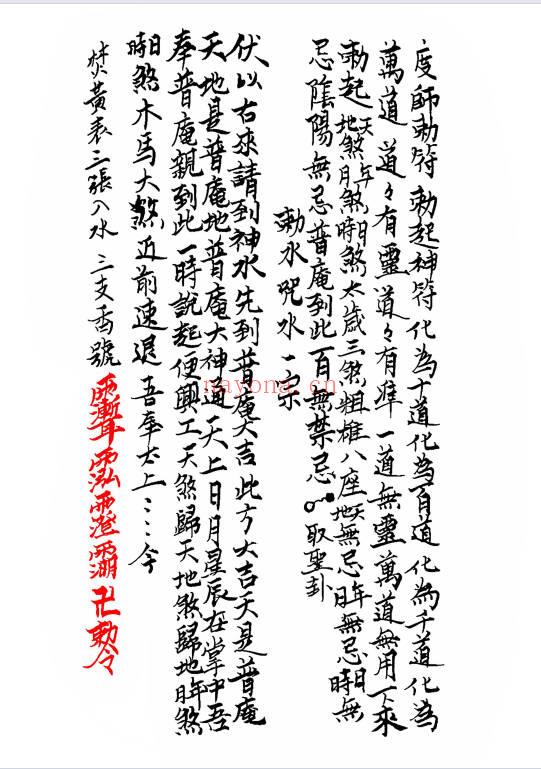 度師勅符 勅起神符化為十道化為百道 化為千道化為
萬道 道々有靈道々有准 一道無靈萬道無用下來
勅起天地煞年月煞日時煞太歲三煞粗椎八座天地無忌年月無忌日時無
忌陰陽無忌普庵到此 百無禁忌 取聖卦
勅水咒水一宗
伏以右來請到神水先到普庵大吉此方大吉天是普庵
天地是普庵地普庵大神通天上日月星辰在掌中吾
奉普庵親到此一時說起便興工天煞歸天地煞歸地年月煞
日時煞木馬大煞近前速退 吾奉太上：：令
焚黃表三張入水 三支香號 卍勅令
nayona.cn